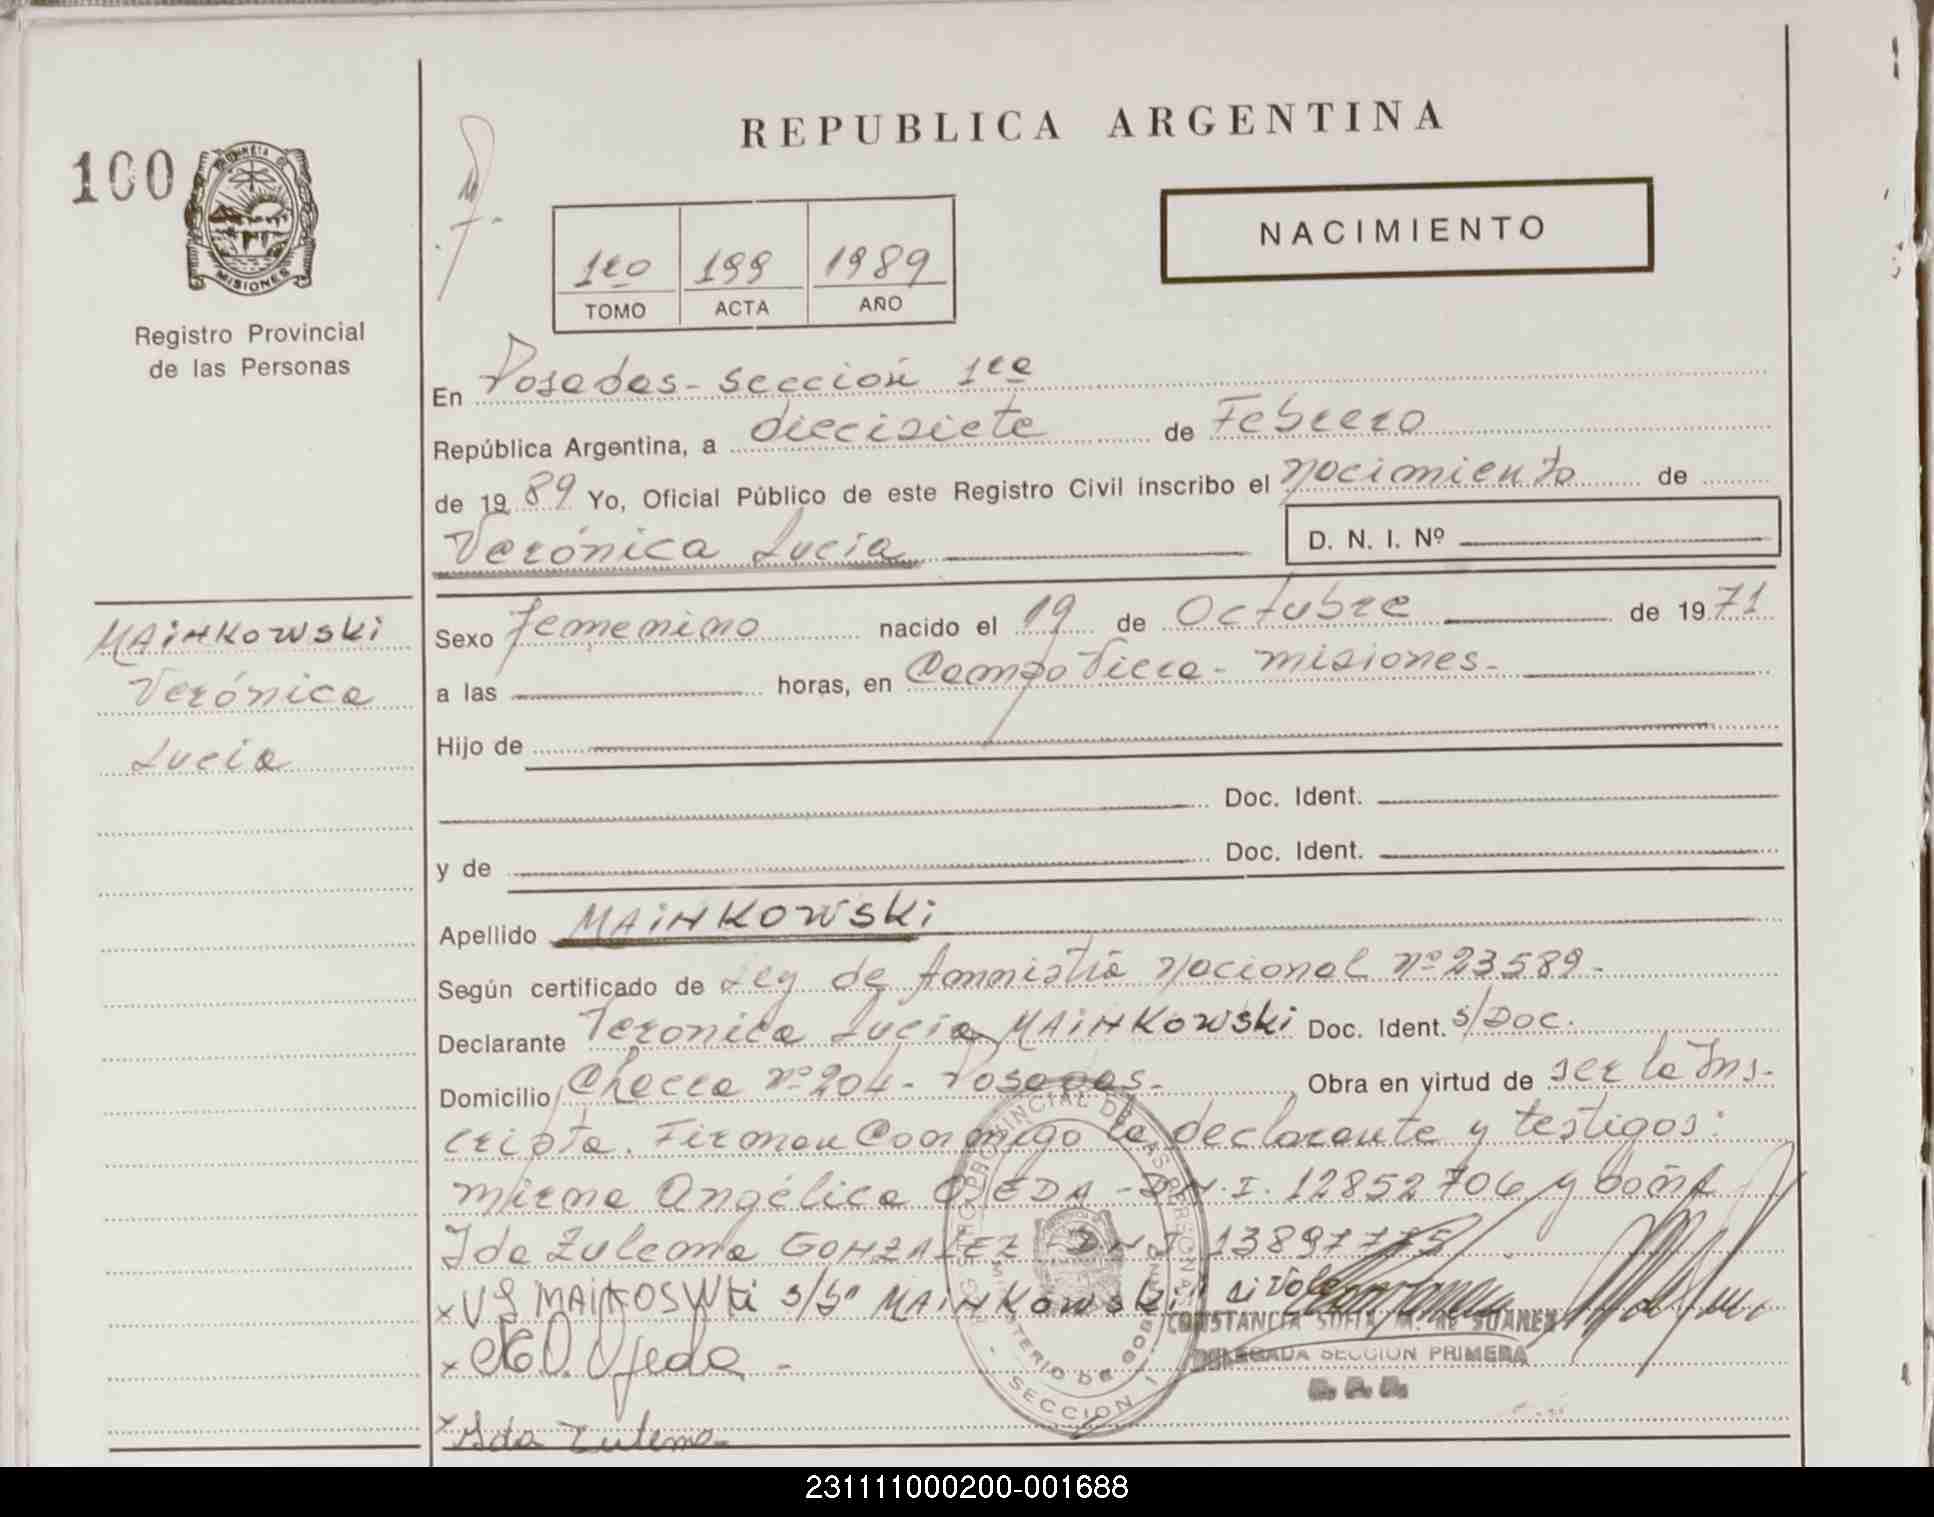 REPUBLICA ARGENTINA
100
PROVINCIA DE
MISIONES
Registro Provincial
de las Personas
1ro 199 1989
TOMO ACTA AÑO
NACIMIENTO
En Posadas - sección 1ra
República Argentina, a diecisiete de Febrero
de 1989 Yo, Oficial Público de este Registro Civil inscribo el nacimiento de
Verónica Lucía
D. N. I. Nº
MAINKOWSKI
Verónica
Lucía
Sexo Femenino nacido el 19 de Octubre de 1971
a las horas, en Campo Viera - misiones -
Hijo de
Doc. Ident.
y de Doc. Ident.
Apellido MAINKOWSKI
Según certificado de Ley de Amnistía nacional nº 23589 -
Declarante Verónica Lucía MAINKOWSKI Doc. Ident. s/Doc.
Domicilio Chacra nº 204 - Posadas - Obra en virtud de ser la Ins-
cripta. Firman Conmigo la declarante y testigos:
Mirna Angélica OJEDA - D.N.I. 12852706 y doña
Ida Zulema GONZALEZ DNI 1389
x V L s/b " MAINKOWSKI" si Vale
CONSTANCIA SOFIA M. de SUAREZ
x Ojeda -
DELEGADA SECCION PRIMERA
R. P. P.
x Ida Zulema
REGISTRO PROVINCIAL DE LAS PERSONAS
MINISTERIO DE GOBIERNO
SECCION 1
231111000200-001688